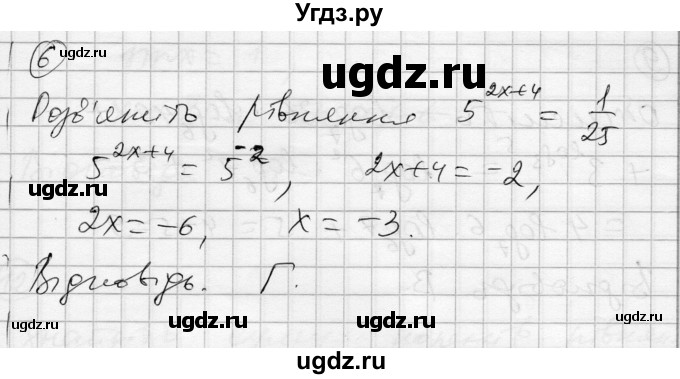 Угдз.ру
6
ugdz.ru ugdz.ru
Розв'яжіть рівняння 5^{2x+4} = 1/25
5^{2x+4} = 5^{-2}, 2x+4 = -2,
ugdz.ru ugdz.ru
2x = -6, x = -3.
Відповідь. Г.
ugdz.ru ugdz.ru
ugdz.ru